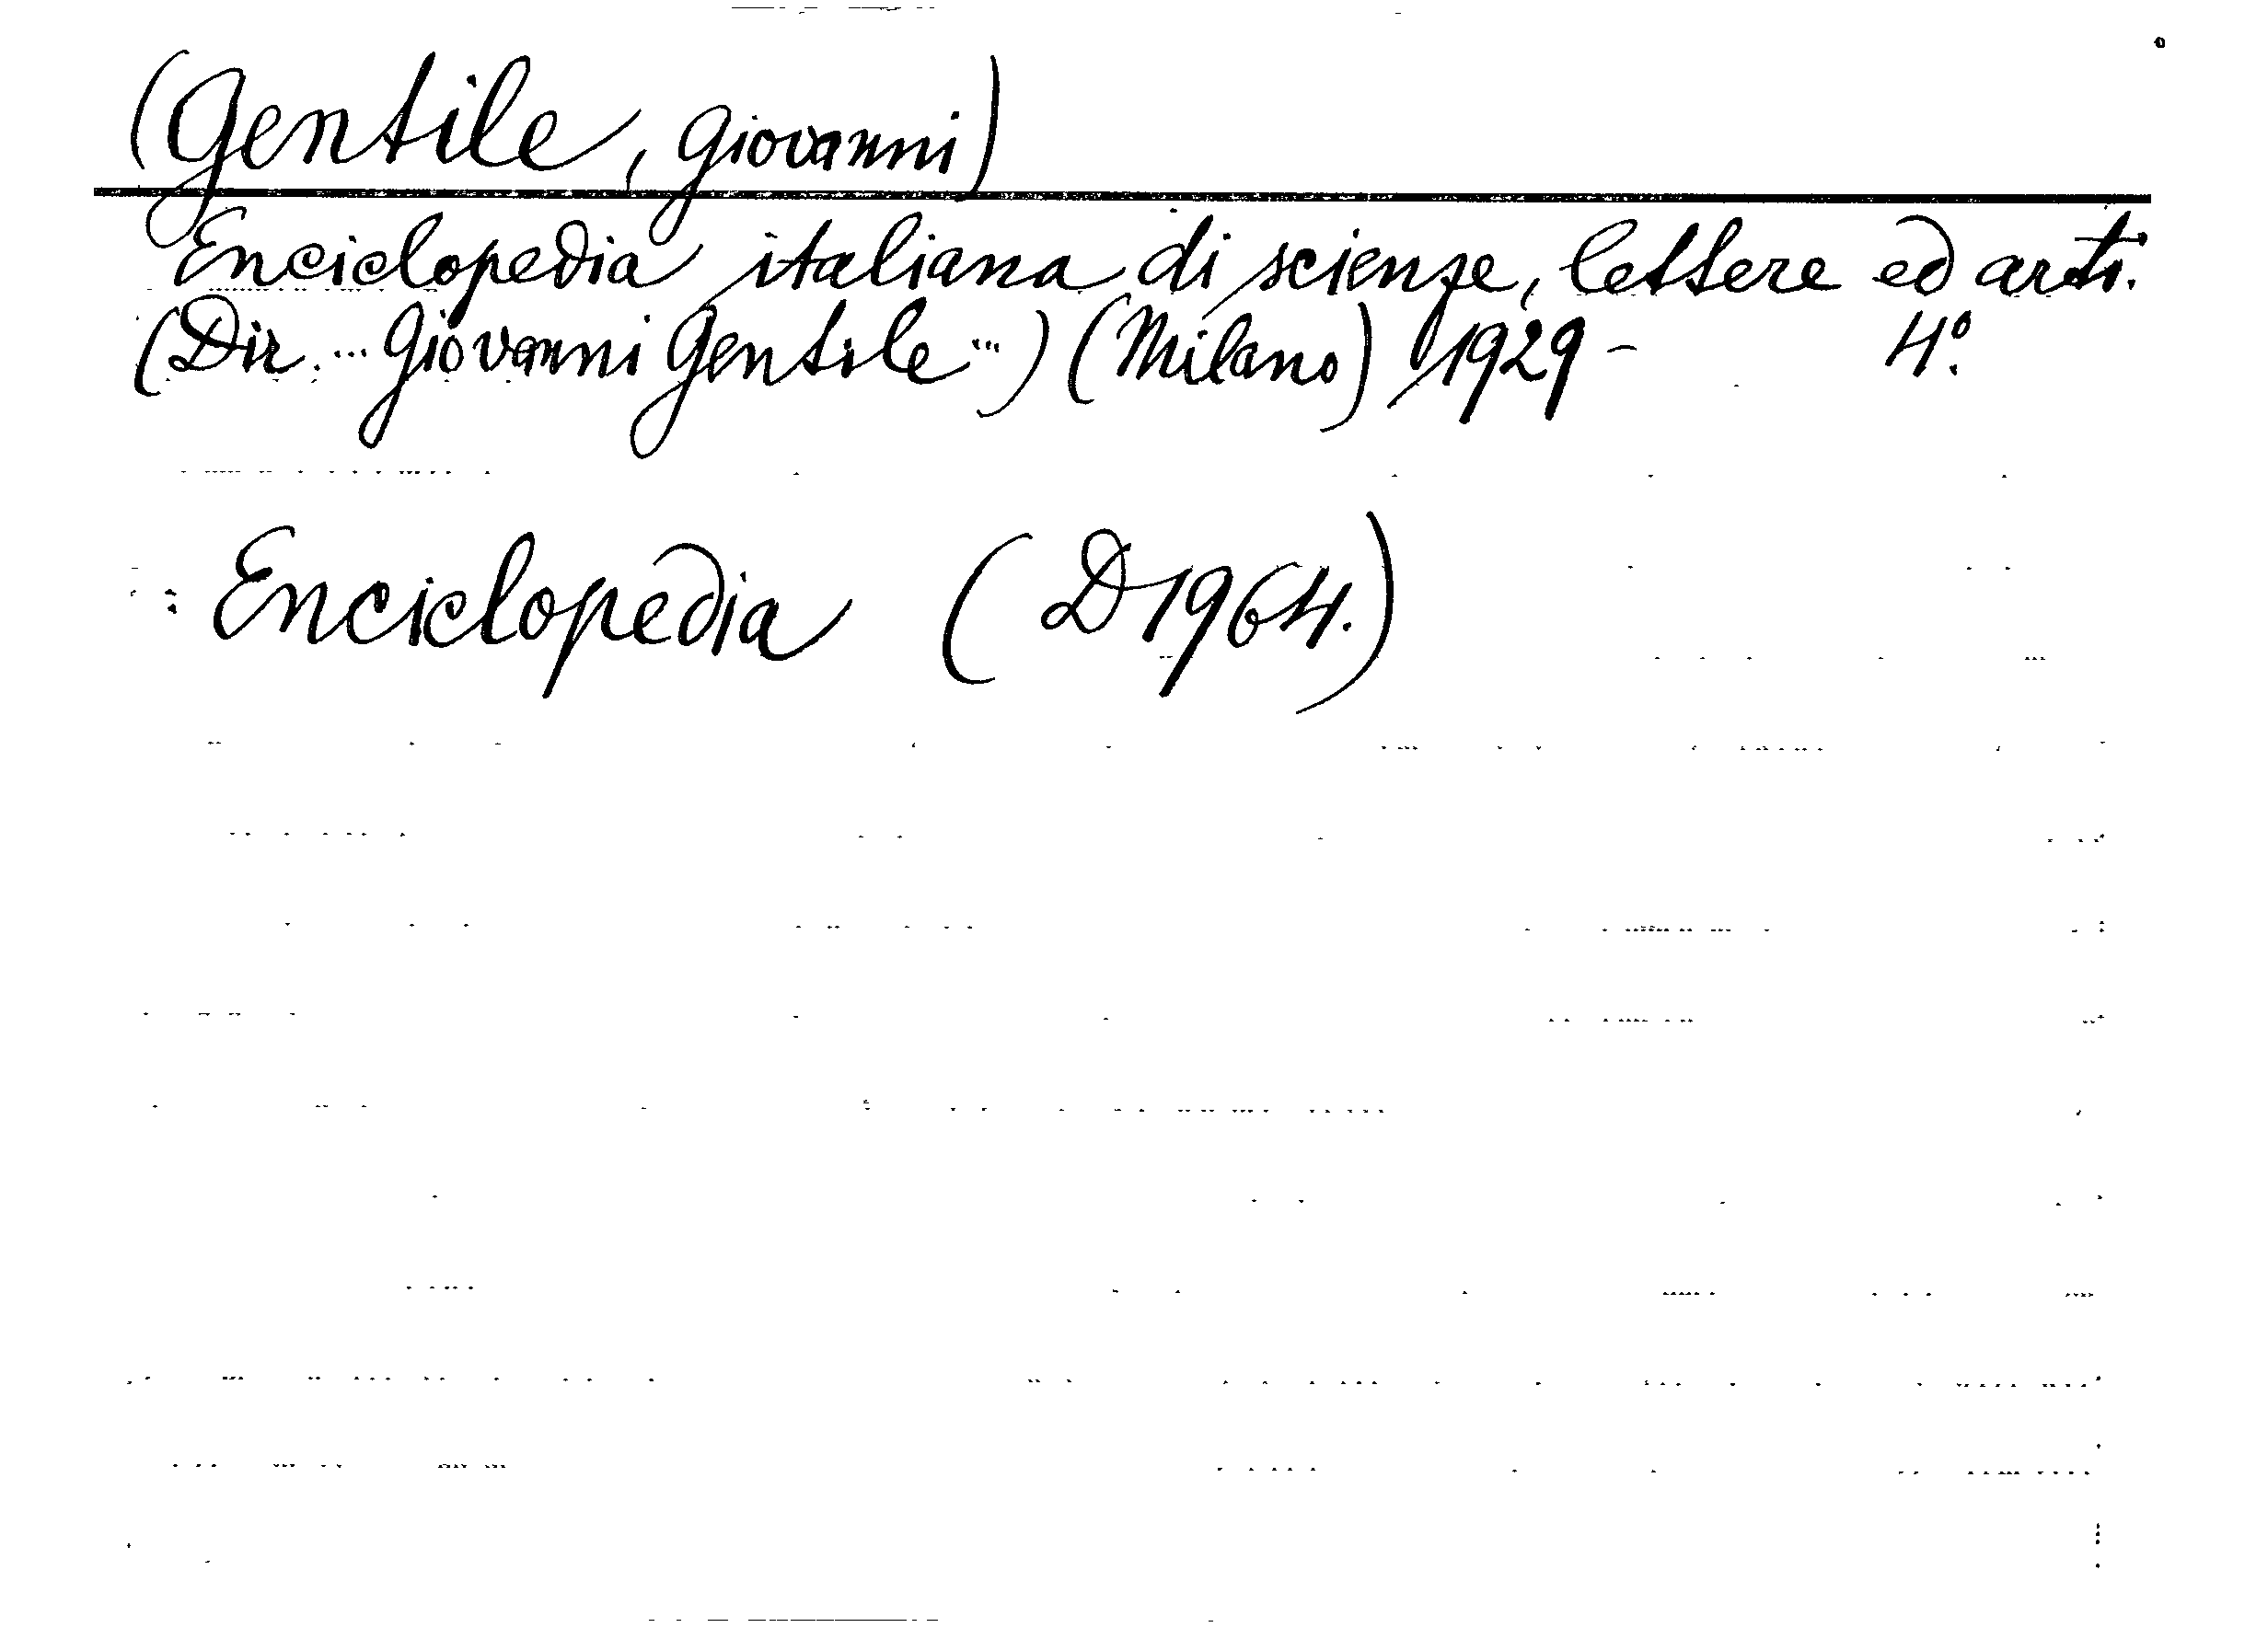 (Gentile, Giovanni)
Enciclopedia italiana di scienze, lettere ed arti.
(Dir. ... Giovanni Gentile ...) (Milano) 1929 - 4°.
: Enciclopedia (D1964.)